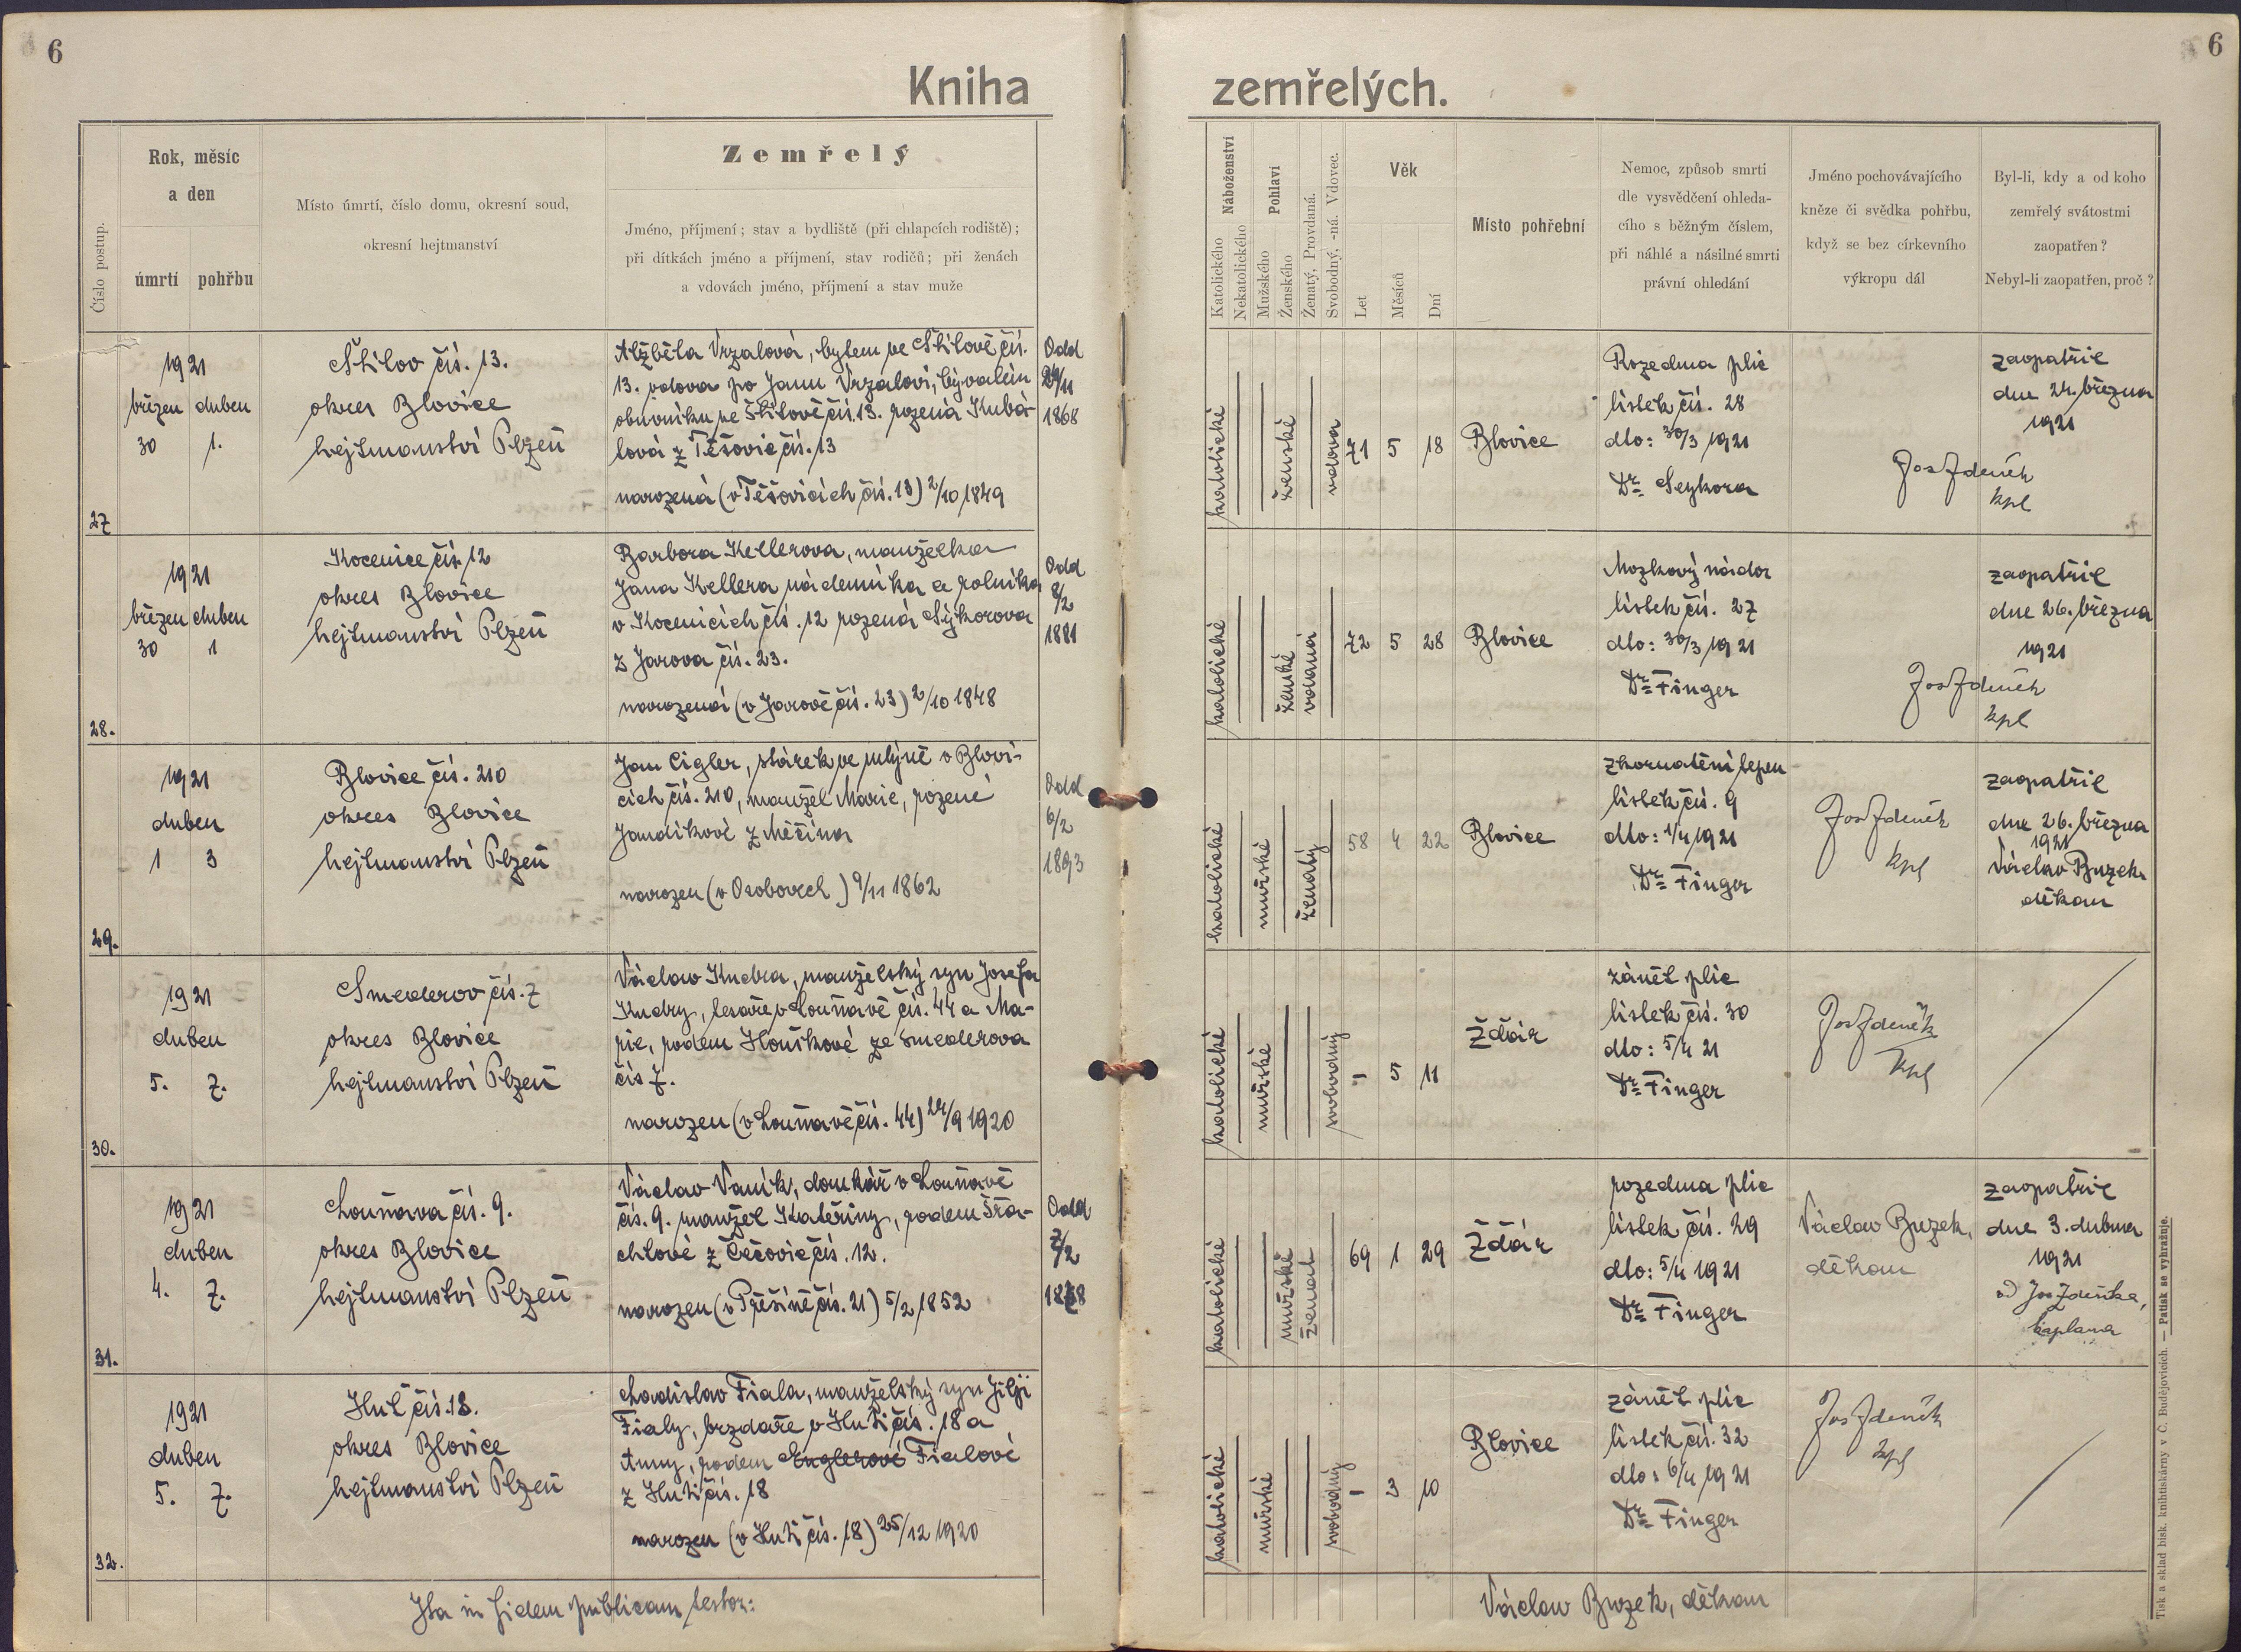 6
6
Kniha
zemřelých.
Číslo postup.
Rok, měsíc
a den
úmrtí
pohřbu
Místo úmrtí, číslo domu, okresní soud,
okresní hejtmanství
Zemřelý
Jméno, příjmení; stav a bydliště (při chlapcích rodiště);
při dítkách jméno a příjmení, stav rodičů; při ženách
a vdovách jméno, příjmení a stav muže
Náboženství
Katolického
Nekatolického
Pohlaví
Mužského
Ženského
Ženatý, Provdaná.
Svobodný, -ná. Vdovec.
Věk
Let
Měsíců
Dní
Místo pohřební
Nemoc, způsob smrti
dle vysvědčení ohleda-
cího s běžným číslem,
při náhlé a násilné smrti
právní ohledání
Jméno pochovávajícího
kněze či svědka pohřbu,
když se bez církevního
výkropu dál
Byl-li, kdy a od koho
zemřelý svátostmi
zaopatřen?
Nebyl-li zaopatřen, proč?
27
1921
březen duben
30 1.
Štítov čís. 13.
okres Blovice
hejtmanství Plzeň
Alžběta Vrzalová, bytem ve Štítově čís.
13. vdova po Janu Vrzalovi, bývalém
obuvníku ve Štítově čís. 13. rozená Kubá-
lová z Těšovic čís. 13
narozená (v Těšovicích čís. 13) 2/10 1849
Odd
24/11
1868
katolické
ženské
vdova
71 5 18
Blovice
Rozedma plic
lístek čís. 28
dto: 30/3 1921
Dr. Seykora
Jos Zdeněk
kpl
zaopatřil
dne 24. března
1921
28.
1921
březen duben
30 1
Kocenice čís. 12
okres Blovice
hejtmanství Plzeň
Barbora Kellerova, manželka
Jana Kellera nádeníka a rolníka
v Kocenicích čís. 12 rozená Sýkorova
z Jarova čís. 23.
narozená (v Jarově čís. 23) 2/10 1848
Odd
8/2
1881
katolické
ženské
vdaná
72 5 28
Blovice
Mozkový nádor
lístek čís. 27
dto: 30/3 1921
Dr. Finger
Jos Zdeněk
kpl
zaopatřil
dne 26. března
1921
29.
1921
duben
1 3
Blovice čís. 210
okres Blovice
hejtmanství Plzeň
Jan Cigler, stárek ve mlýně v Blovi-
cích čís. 210, manžel Marie, rozené
Jandíkové z Měčína
narozen (v Osobovech) 9/11 1862
Odd
6/2
1893
katolické
mužské
ženatý
58 4 22
Blovice
zkornatění tepen
lístek čís. 9
dto: 1/4 1921
Dr. Finger
Jos Zdeněk
kpl
zaopatřil
dne 26. března
1921
Václav Buzek
děkan
30.
1921
duben
5. 7.
Smederov čís. 7
okres Blovice
hejtmanství Plzeň
Václav Kudra, manželský syn Josefa
Kudry, tesaře v Louňavě čís. 44 a Ma-
rie, rodem Houškové ze Smederova
čís 7.
narozen (v Louňavě čís. 44) 24/9 1920
katolické
mužské
svobodný
- 5 11
Ždár
zánět plic
lístek čís. 30
dto: 5/4 21
Dr. Finger
Jos Zdeněk
kpl
31.
1921
duben
4. 7.
Louňava čís. 9.
okres Blovice
hejtmanství Plzeň
Václav Vaník, domkář v Louňavě
čís. 9. manžel Kateřiny, rodem Stra-
chtové z Čečovic čís. 12.
narozen (v Přešíně čís. 21) 5/2 1852
Odd
7/2
1878
katolické
mužské
ženat
69 1 29
Ždár
rozedma plic
lístek čís. 29
dto: 5/4 1921
Dr. Finger
Václav Buzek,
děkan
zaopatřil
dne 3. dubna
1921
od Jos Zdeňka,
kaplana
32.
1921
duben
5. 7.
Huť čís. 18.
okres Blovice
hejtmanství Plzeň
Ladislav Fiala, manželský syn Jiljí
Fialy, brzdaře v Huti čís. 18 a
Anny, rodem Englerové Fialové
z Huti čís. 18
narozen (v Huti čís. 18) 25/12 1920
katolické
mužské
svobodný
- 3 10
Blovice
zánět plic
lístek čís. 32
dto: 6/4 1921
Dr. Finger
Jos Zdeněk
kpl
Ita in fidem publicam testor:
Václav Buzek, děkan
Tisk a sklad bisk. knihtiskárny v Č. Budějovicích. — Patisk se vyhražuje.